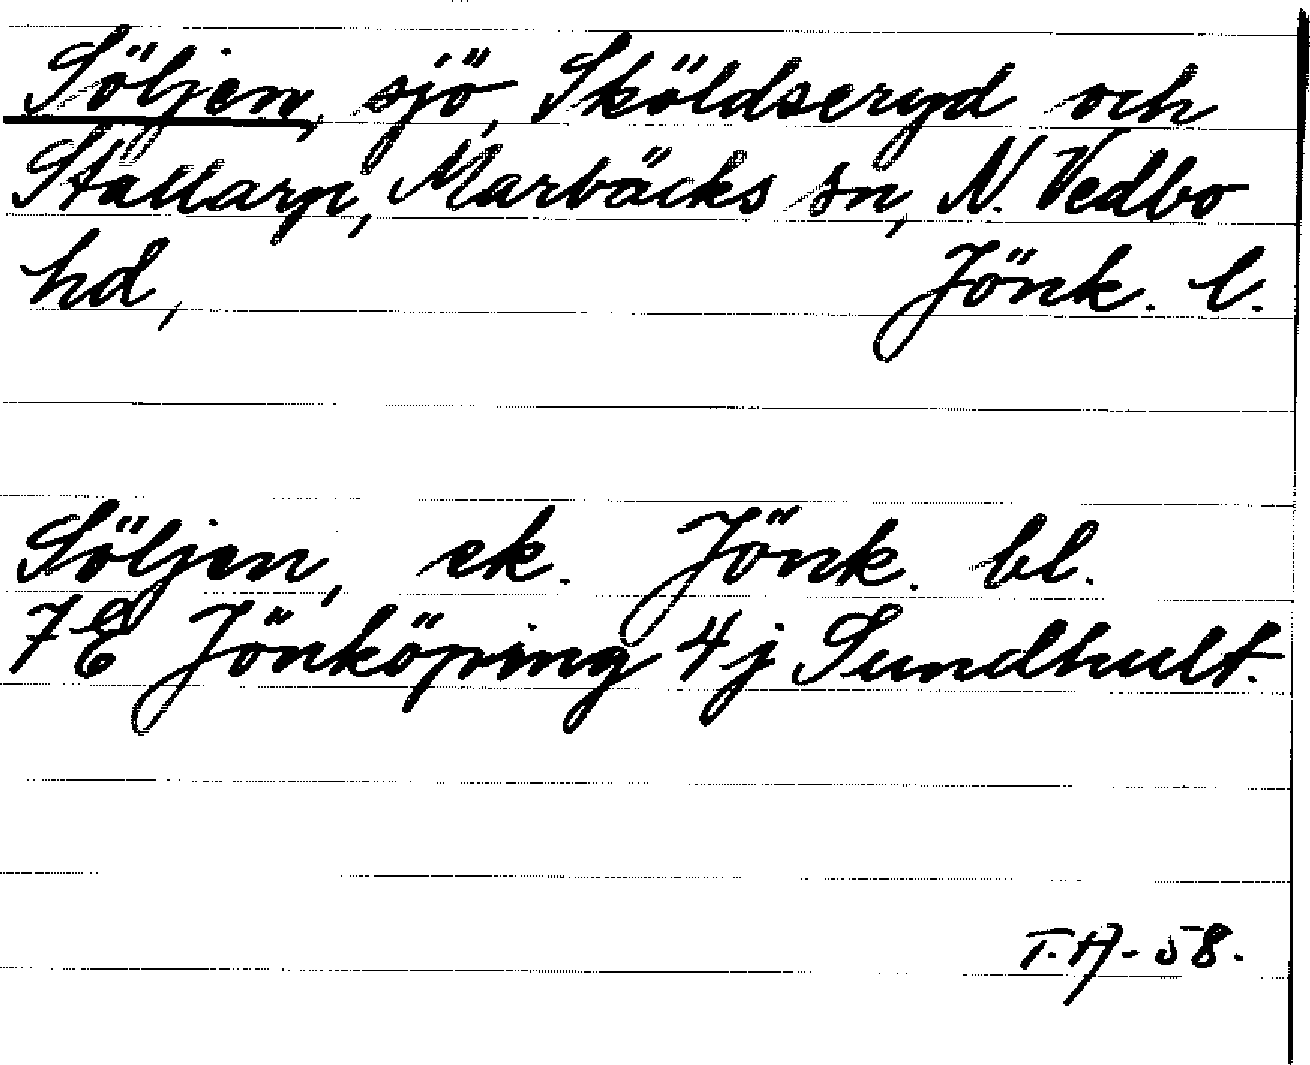 Söljen, sjö, Sköldseryd och
Stallarp, Marbäcks sn, N. Vedbo
hd, Jönk. l.
Söljen, ek. Jönk. bl.
7E Jönköping 4j Sundhult.
T.A-58.